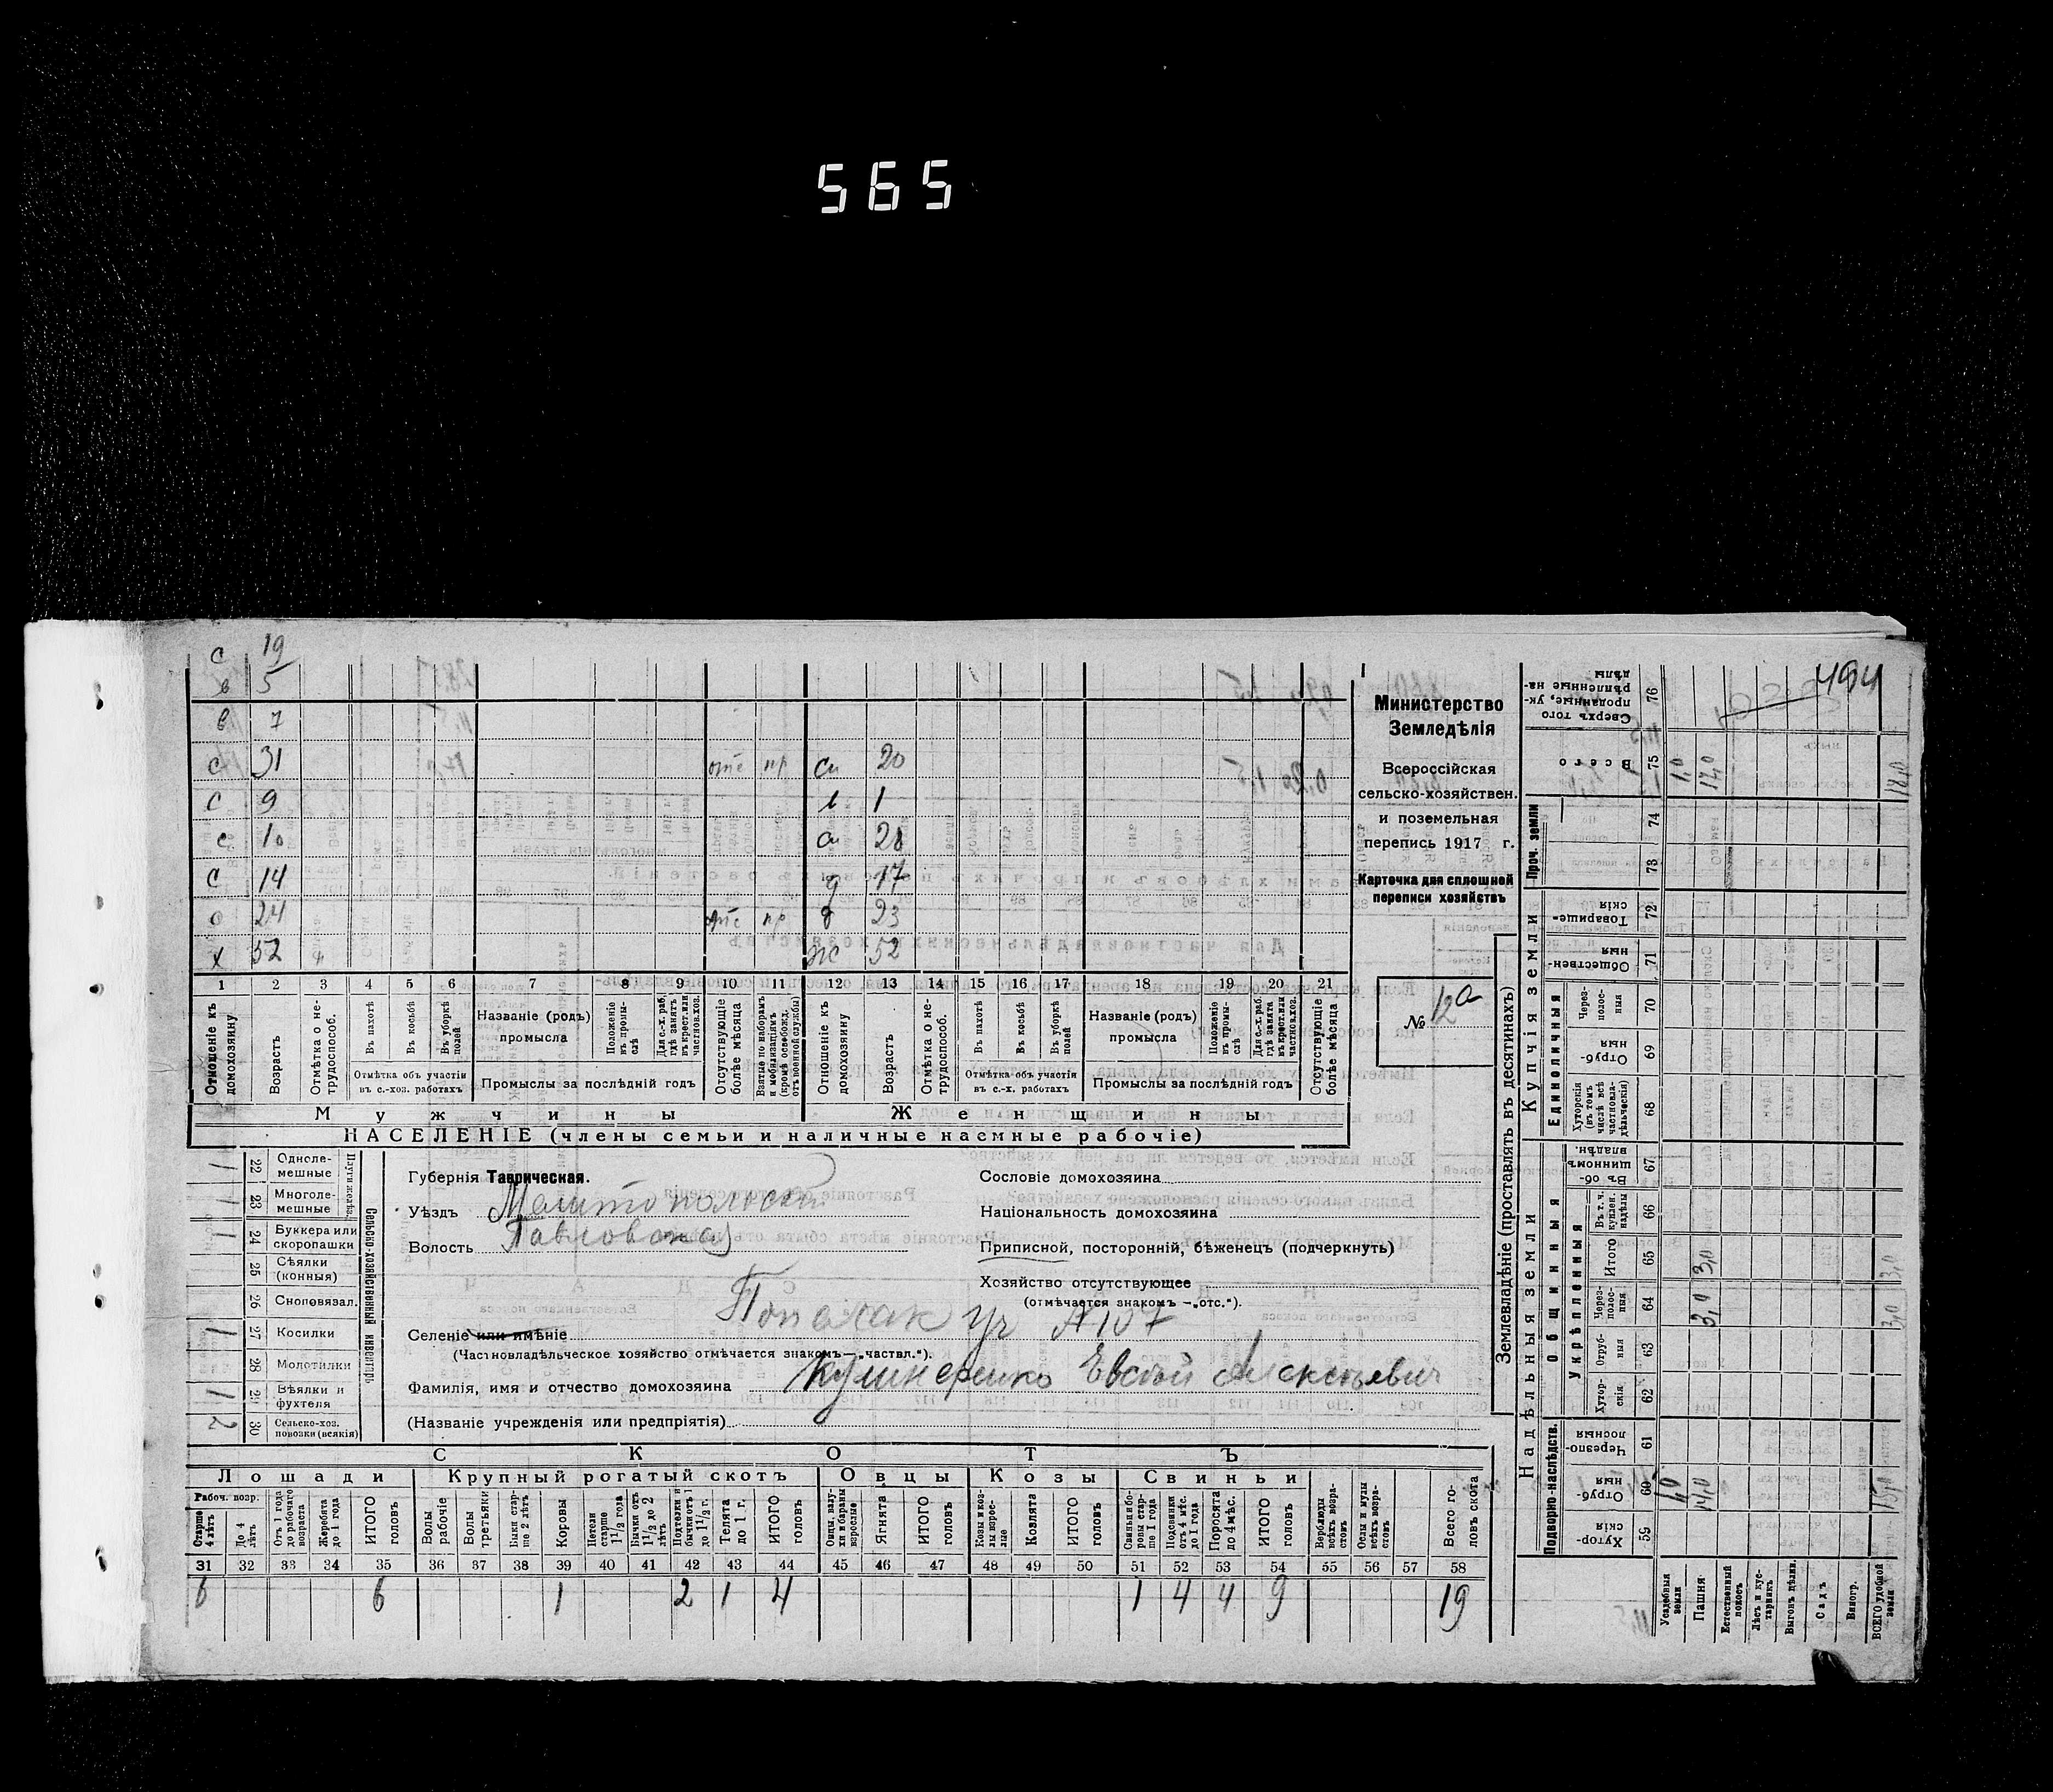 565
494
с 19
в 5
в 7
с 31 отс пр сн 20
с 9 в 1
с 10 сн 28
с 14 д 17
о 24 отс пр д 23
х 52 ж 52
1 2 3 4 5 6 7 8 9 10 11 12 13 14 15 16 17 18 19 20 21
Отношеніе къ домохозяину
Возрастъ
Отмѣтка о нетрудоспособ.
Въ пахотѣ
Въ косьбѣ
Въ уборкѣ полей
Отмѣтка объ участіи въ с.-хоз. работахъ
Названіе (родъ) промысла
Положеніе въ промыслѣ
Для с.-х. раб. гдѣ занятъ въ крест. или частнов. хоз.
Промыслы за послѣдній годъ
Отсутствующіе болѣе мѣсяца
Взятые по наборамъ и мобилизаціямъ (кромѣ освобожд. отъ военной службы)
Отношеніе къ домохозяину
Возрастъ
Отмѣтка о нетрудоспособ.
Въ пахотѣ
Въ косьбѣ
Въ уборкѣ полей
Отмѣтка объ участіи въ с.-х. работахъ
Названіе (родъ) промысла
Положеніе въ промыслѣ
Для с.-х. раб. гдѣ занята въ крест. или частнов. хоз.
Промыслы за послѣдній годъ
Отсутствующіе болѣе мѣсяца
Мужчины Женщины
НАСЕЛЕНІЕ (члены семьи и наличные наемные рабочіе)
Министерство
Земледѣлія
Всероссійская
сельско-хозяйствен.
и поземельная
перепись 1917 г.
Карточка для сплошной
переписи хозяйствъ
№ 12а
Сельско-хозяйственный инвентарь
Плуги желѣз.
22 Однолемешные 1
23 Многолемешные 1
24 Буккера или скоропашки 1
25 Сѣялки (конныя)
26 Сноповязал.
27 Косилки 1
28 Молотилки
29 Вѣялки и фухтеля 1
30 Сельско-хоз. повозки (всякія) 2
Губернія Таврическая.
Уѣздъ Мелитопольскій
Волость Павловская
Сословіе домохозяина
Національность домохозяина
Приписной, посторонній, бѣженецъ (подчеркнуть)
Хозяйство отсутствующее
(отмѣчается знакомъ —„отс.“).
Селеніе или имѣніе уч №107
(Частновладѣльческое хозяйство отмѣчается знакомъ—„частвл.“).
Фамилія, имя и отчество домохозяина Кушнеренко Евсѣй Алексѣевич
(Названіе учрежденія или предпріятія)
СКОТЪ
Лошади Крупный рогатый скотъ Овцы Козы Свиньи
Рабоч. возр.
Старше 4 лѣтъ
До 4 лѣтъ
Отъ 1 года до рабочаго возраста
Жеребята до 1 года
ИТОГО головъ
Волы рабочіе
Волы третьяки
Быки старше 2 лѣтъ
Коровы
Нетели старше 1 1/2 года
Бычки отъ 1 1/2 до 2 лѣтъ
Подтелки и бычки отъ 1 до 1 1/2 г.
Телята до 1 г.
ИТОГО головъ
Овцы, валухи и бараны взрослые
Ягнята
ИТОГО головъ
Козы и козлы взрослые
Козлята
ИТОГО головъ
Свиньи и боровы старше 1 года
Подсвинки отъ 4 мѣс. до 1 года
Поросята до 4 мѣс.
ИТОГО головъ
Верблюды всѣхъ возрастовъ
Ослы и мулы всѣхъ возрастовъ
Всего головъ скота
31 32 33 34 35 36 37 38 39 40 41 42 43 44 45 46 47 48 49 50 51 52 53 54 55 56 57 58
6 6 1 2 1 4 1 4 4 9 19
Землевладѣніе (проставлять въ десятинахъ)
Надѣльныя земли
Купчія земли
Проч. земли
Подворно-наслѣдств.
Общинныя
Укрѣпленныя
Единоличныя
76 Сверхъ того проданные, укрѣпленные надѣлы
75 Всего 1,0 17,0 18,0
74
73
72 Товарищескія
71 Общественныя
70 Черезполосныя
69 Отрубныя
68 Хуторскія (въ томъ числѣ всѣ частновладѣльческія)
67 Въ общинномъ владѣн.
66 Въ т. ч. куплен. надѣлы
65 Итого 3,0 3,0
64 Черезполосныя 3,0 3,0
63 Отрубн.
62 Хуторскія
61 Черезполосныя
60 Отрубныя 1,0 14,0 15,0
59 Хуторскія
Усадебныя земли
Пашня
Естественный покосъ
Лѣсъ и кустарникъ
Выгонъ цѣлин.
Садъ
Виногр.
ВСЕГО удобной земли